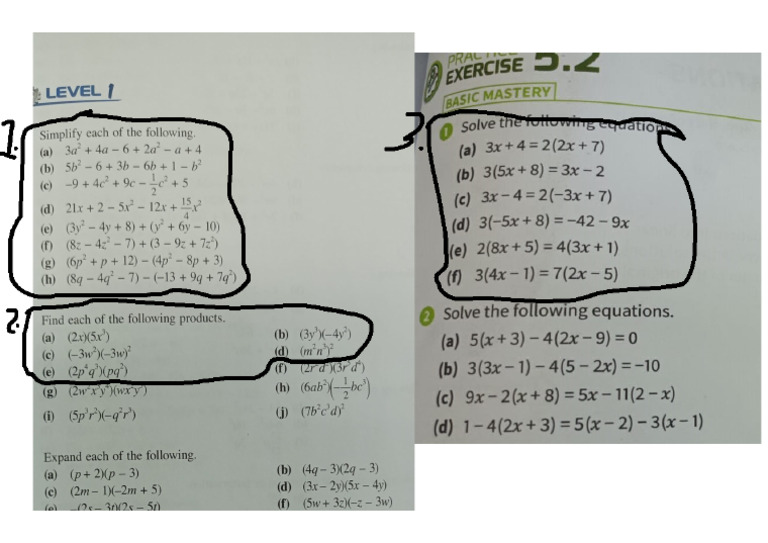 LEVEL 1
1.
Simplify each of the following.
(a) 3a² + 4a − 6 + 2a² − a + 4
(b) 5b² − 6 + 3b − 6b + 1 − b²
(c) −9 + 4c² + 9c − 1/2c² + 5
(d) 21x + 2 − 5x² − 12x + 15/4x²
(e) (3y² − 4y + 8) + (y² + 6y − 10)
(f) (8z − 4z² − 7) + (3 − 9z + 7z²)
(g) (6p² + p + 12) − (4p² − 8p + 3)
(h) (8q − 4q² − 7) − (−13 + 9q + 7q²)
2.
Find each of the following products.
(a) (2x)(5x³)
(b) (3y³)(−4y²)
(c) (−3w²)(−3w)²
(d) (m²n³)²
(e) (2p⁴q³)(pq²)
(f)
(g)
(h) (6ab²)(−1/2bc³)
(i) (5p³r²)(−q²r³)
(j) (7b²c³d)²
Expand each of the following.
(a) (p + 2)(p − 3)
(b) (4q − 3)(2q − 3)
(c) (2m − 1)(−2m + 5)
(d) (3x − 2y)(5x − 4y)
(f) (5w + 3z)(−z − 3w)
PRACTICE
EXERCISE 5.2
BASIC MASTERY
3.
1 Solve the following equations.
(a) 3x + 4 = 2(2x + 7)
(b) 3(5x + 8) = 3x − 2
(c) 3x − 4 = 2(−3x + 7)
(d) 3(−5x + 8) = −42 − 9x
(e) 2(8x + 5) = 4(3x + 1)
(f) 3(4x − 1) = 7(2x − 5)
2 Solve the following equations.
(a) 5(x + 3) − 4(2x − 9) = 0
(b) 3(3x − 1) − 4(5 − 2x) = −10
(c) 9x − 2(x + 8) = 5x − 11(2 − x)
(d) 1 − 4(2x + 3) = 5(x − 2) − 3(x − 1)